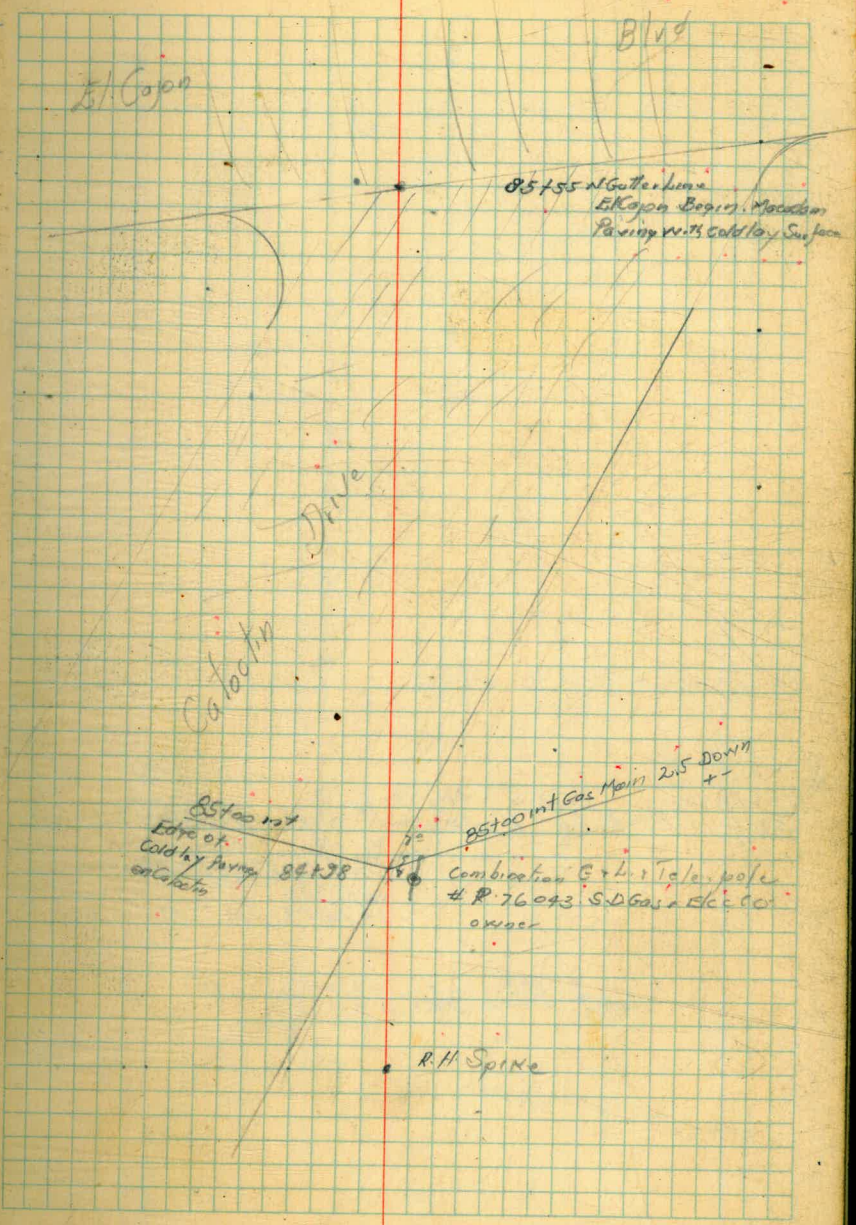 El Cajon
Blvd
85+55 N Gutter Line
El Cajon Begin Macadam
Paving with Coldlay Surface
Drive
Catoctin
85+00 int Gas Main 2.5 Down
+ -
85+00 int
Edge of
Coldlay Paving
on Catoctin
84+98
Combination E. & L. & Tele. pole
# P 76043 S.D Gas & Elec Co
owner
R.H. Spike